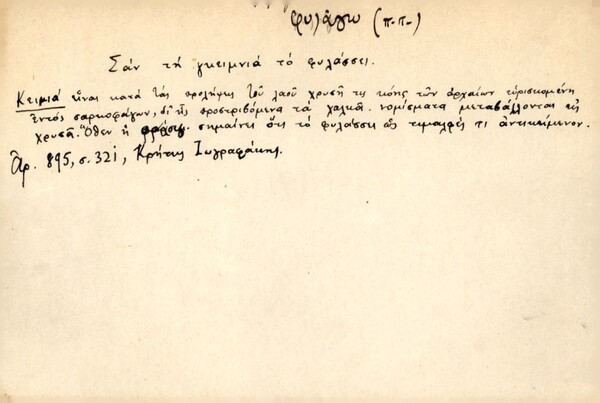 φυλάγω (π.-π.-)
Σάν τή γκειμνιά τό φυλάσσει.
Κειμιά εἶναι κατά τάς προλήψεις τοῦ λαοῦ χρυσῆ τις κόνις τῶν ἀρχαίων εὑρισκομένη
ἐντός σαρκοφάγων, δι' ἧς προστριβόμενα τά χαλκᾶ νομίσματα μεταβάλλονται εἰς
χρυσᾶ. Ὅθεν ἡ φράσις σημαίνει ὅτι τό φυλάσσει ὡς τιμαλφές τι ἀντικείμενον.
Ἀρ. 895, σ. 321, Κρήτης Ζωγραφάκης.